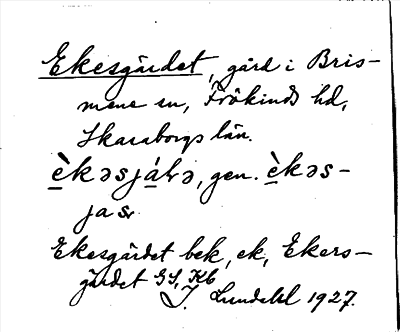 Ekesgärdet, gård i Bris-
mene sn, Frökinds hd,
Skaraborgs län.
èkəsjálə, gen. èkəs-
jas
Ekesgärdet bek, ek, Ekers-
gärdet GS, Kb
J. Lundahl 1927.